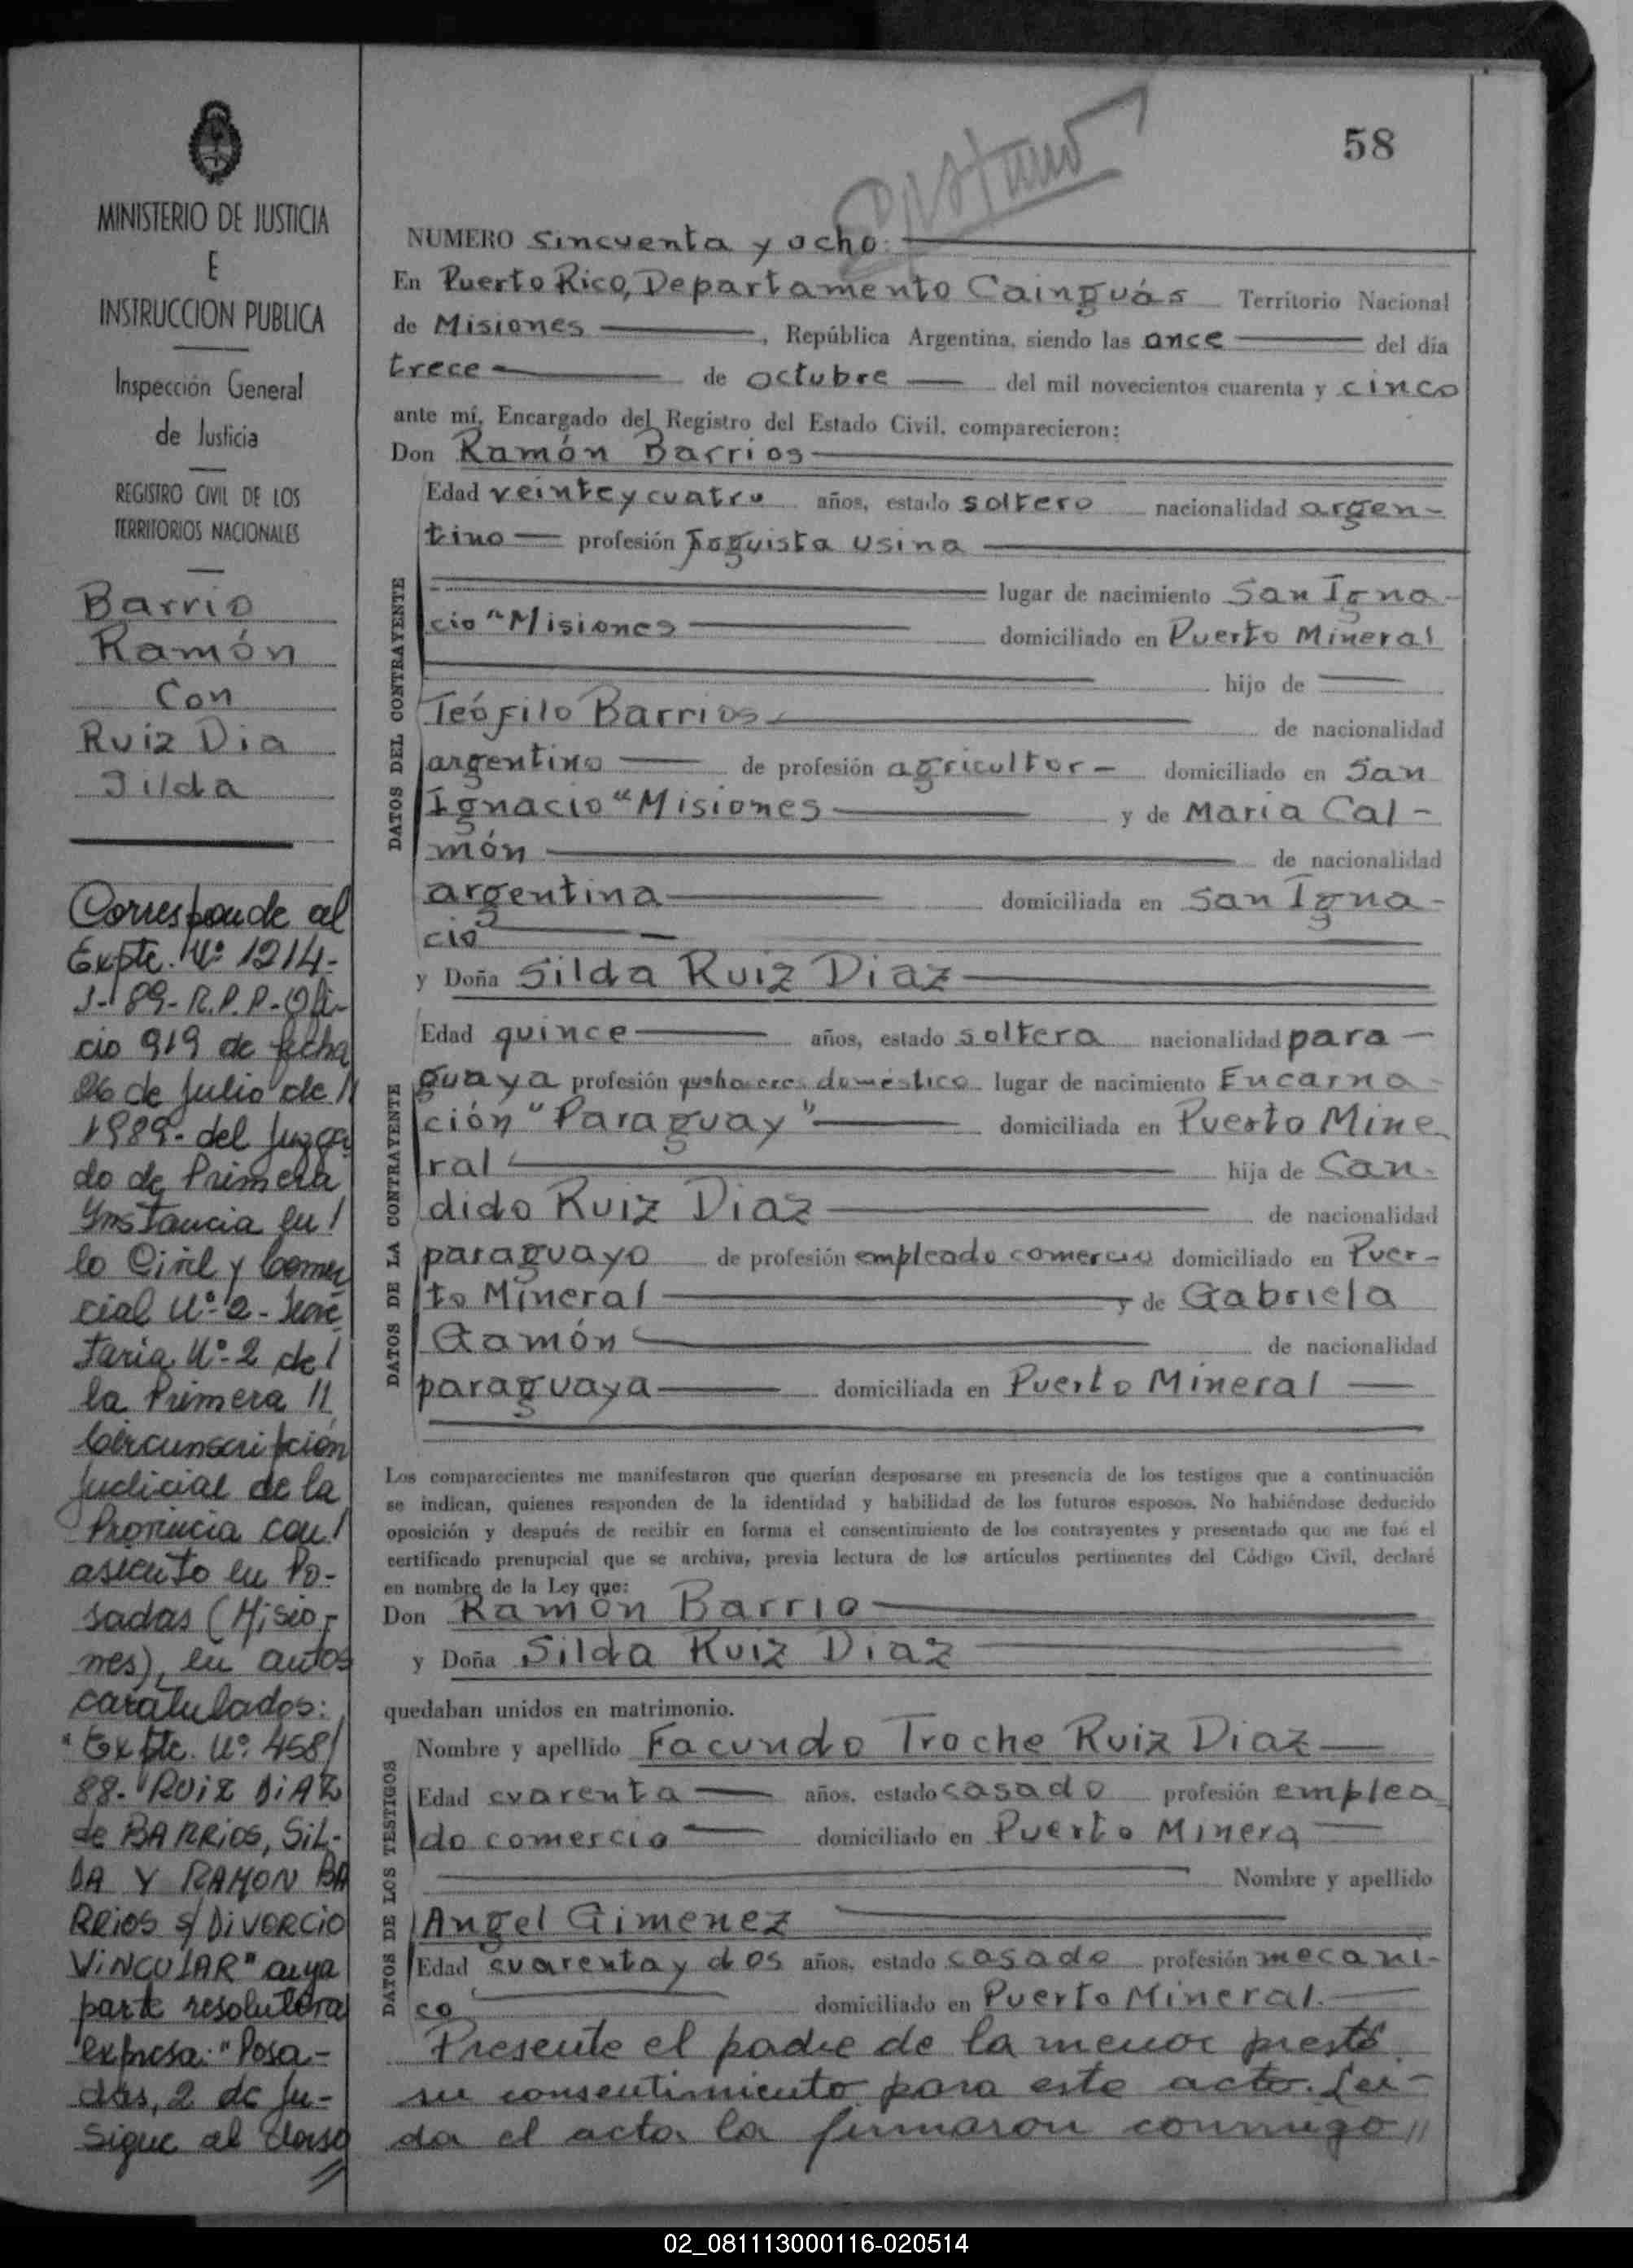 58
MINISTERIO DE JUSTICIA
E
INSTRUCCION PUBLICA
Inspección General
de Justicia
REGISTRO CIVIL DE LOS
TERRITORIOS NACIONALES
Barrio
Ramón
Con
Ruiz Dia
Silda
Corresponde al
Expte. Nº 1214-
J-89-R.P.P-Ofi-
cio 919 de fecha
26 de Julio de //
1989- del Juzga
do de Primera
Ynstancia en /
lo Civil y Comer
cial Nº 2- Secre
taria Nº 2 de /
la Primera //
Circunscripción
Judicial de la
Provincia con /
asiento en Po-
sadas (Misio-
nes), en autos
caratulados:
"Expte. Nº 458/
88- RUIZ DIAZ
de BARRIOS, SIL-
DA Y RAMON BA
RRIOS s/ DIVORCIO
VINCULAR" cuya
parte resolutora
expresa: "Posa-
das, 2 de Ju-
Sigue al dorso
//
NUMERO sincuenta y ocho.
En Puerto Rico, Departamento Cainguás Territorio Nacional
de Misiones, República Argentina, siendo las once del día
trece de octubre del mil novecientos cuarenta y cinco
ante mí, Encargado del Registro del Estado Civil, comparecieron:
Don Ramón Barrios
DATOS DEL CONTRAYENTE
Edad veinte y cuatro años, estado soltero nacionalidad argen-
tino profesión foguista usina
lugar de nacimiento San Igna-
cio "Misiones domiciliado en Puerto Mineral
hijo de
Teófilo Barrios de nacionalidad
argentino de profesión agricultor - domiciliado en San
Ignacio "Misiones y de Maria Cal-
món de nacionalidad
argentina domiciliada en San Igna-
cio
y Doña Silda Ruiz Diaz
DATOS DE LA CONTRAYENTE
Edad quince años, estado soltera nacionalidad para-
guaya profesión domestico lugar de nacimiento Encarna-
ción "Paraguay" domiciliada en Puerto Mine
ral hija de Can-
dido Ruiz Diaz de nacionalidad
paraguayo de profesión empleado comercio domiciliado en Puer-
to Mineral y de Gabriela
Gamón de nacionalidad
paraguaya domiciliada en Puerto Mineral
Los comparecientes me manifestaron que querían desposarse en presencia de los testigos que a continuación
se indican, quienes responden de la identidad y habilidad de los futuros esposos. No habiéndose deducido
oposición y después de recibir en forma el consentimiento de los contrayentes y presentado que me fué el
certificado prenupcial que se archiva, previa lectura de los artículos pertinentes del Código Civil, declaré
en nombre de la Ley que:
Don Ramón Barrio
y Doña Silda Ruiz Diaz
quedaban unidos en matrimonio.
DATOS DE LOS TESTIGOS
Nombre y apellido Facundo Troche Ruiz Diaz
Edad cvarenta años, estado casado profesión emplea
do comercio domiciliado en Puerto Minera
Nombre y apellido
Angel Gimenez
Edad cuarenta y dos años, estado casado profesión mecani-
co domiciliado en Puerto Mineral.
Presente el padre de la menor prestó
su consentimiento para este acto. Lei-
da el acta la firmaron conmigo //
02_081113000116-020514